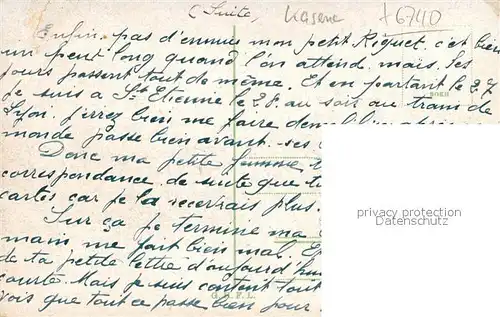 (Suite) Kaserne +6740
Enfin, pas d'ennuis mon petit Riquet, c'est bien
un peut long quand l'on attend mais, les
jours passent tout de même. Et en partant le 27
je suis a St Etienne le 28. au soir au train de
Lyon. J'irrez bien me faire
monde passe bien avant.
Donc ma petite femme
correspondance de suite que
cartes car je la recevrais plus.
Sur ça je termine ma
main, me fait bien mal. Et
de ta petite lettre d'aujourd'hui
courte. Mais je suis content tout
vois que tout ce passe bien pour
privacy protection
Datenschutz